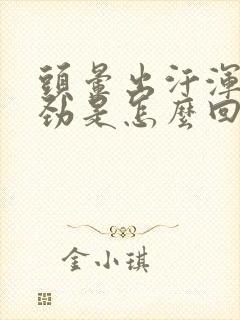 頭暈出汗渾
勁是怎麼回
金小琪